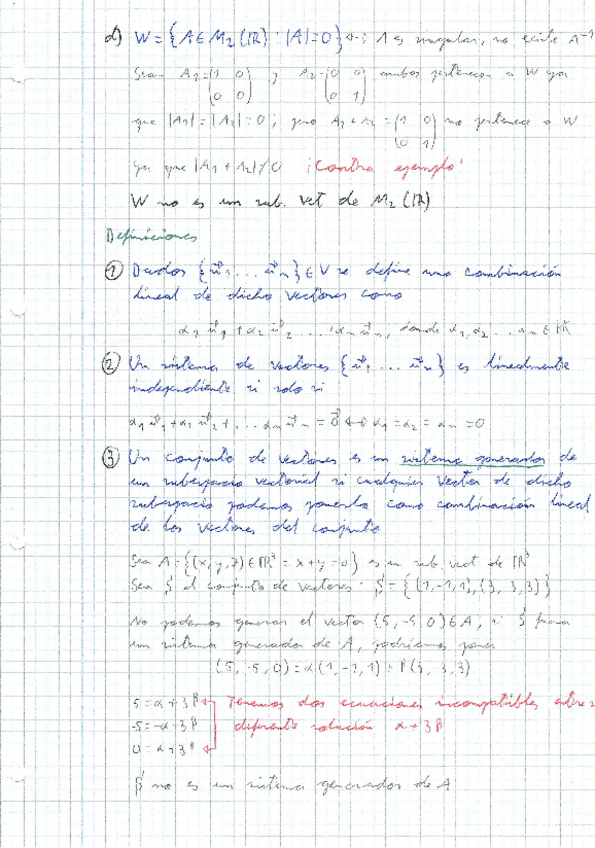 d) W = {A ∈ M₂(ℝ) : |A| = 0} ↔ A es singular, no existe A⁻¹
Sean A₁ = (1 0 / 0 0) y A₂ = (0 0 / 0 1) ambos pertenecen a W ya
que |A₁| = |A₂| = 0; pero A₁ + A₂ = (1 0 / 0 1) no pertenece a W
ya que |A₁ + A₂| ≠ 0 ¡Contra ejemplo!
W no es un sub. vet de M₂(ℝ)
Definiciones
① Dados {u⃗₁, ... u⃗ₙ} ∈ V se define una combinación
lineal de dicho vectores como
α₁u⃗₁ + α₂u⃗₂ ... + αₙu⃗ₙ, donde α₁, α₂ ... αₙ ∈ ℝ
② Un sistema de vectores {u⃗₁, ... u⃗ₙ} es linealmente
independiente si solo si
α₁u⃗₁ + α₂u⃗₂ + ... αₙu⃗ₙ = 0⃗ ↔ α₁ = α₂ = αₙ = 0
③ Un conjunto de vectores es un sistema generador de
un subespacio vectorial si cualquier vector de dicho
subespacio podemos ponerlo como combinación lineal
de los vectores del conjunto
Sea A = {(x, y, z) ∈ ℝ³ = x + y = 0} es un sub. vect de ℝ³
Sea S el conjunto de vectores: S = {(1, -1, 1), (3, 3, 3)}
No podemos generar el vector (5, -5, 0) ∈ A, si S fuera
un sistema generador de A, podríamos poner
(5, -5, 0) = α(1, -1, 1) + β(3, 3, 3)
5 = α + 3β Tenemos dos ecuaciones incompatibles entre
-5 = -α + 3β diferente solución α + 3β
0 = α + 3β
S no es un sistema generador de A